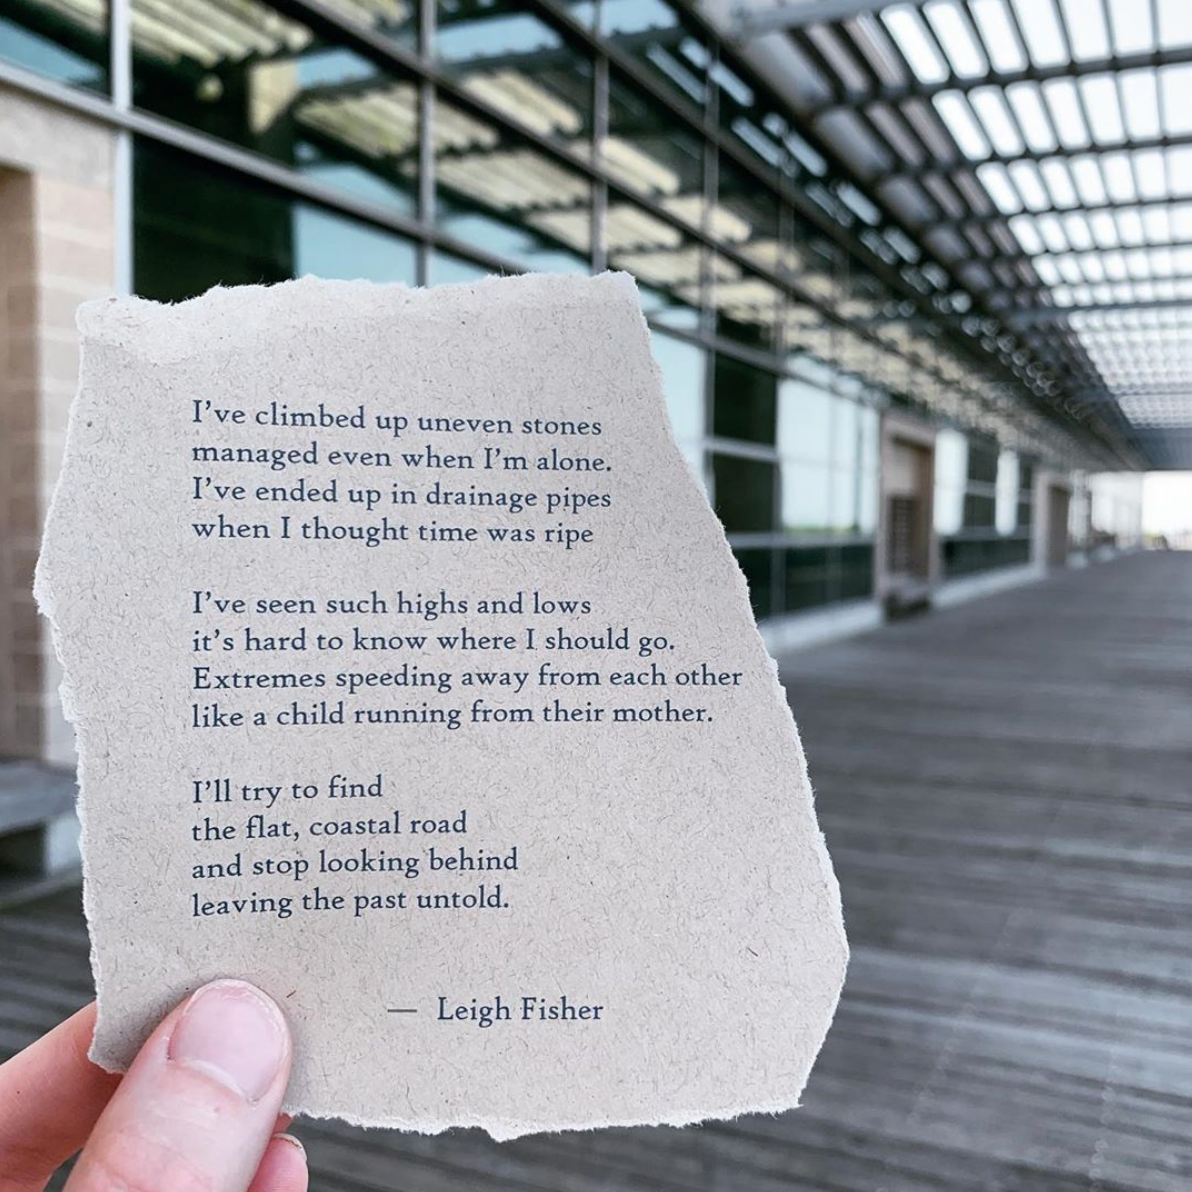 I've climbed up uneven stones
managed even when I'm alone.
I've ended up in drainage pipes
when I thought time was ripe
I've seen such highs and lows
it's hard to know where I should go.
Extremes speeding away from each other
like a child running from their mother.
I'll try to find
the flat, coastal road
and stop looking behind
leaving the past untold.
— Leigh Fisher